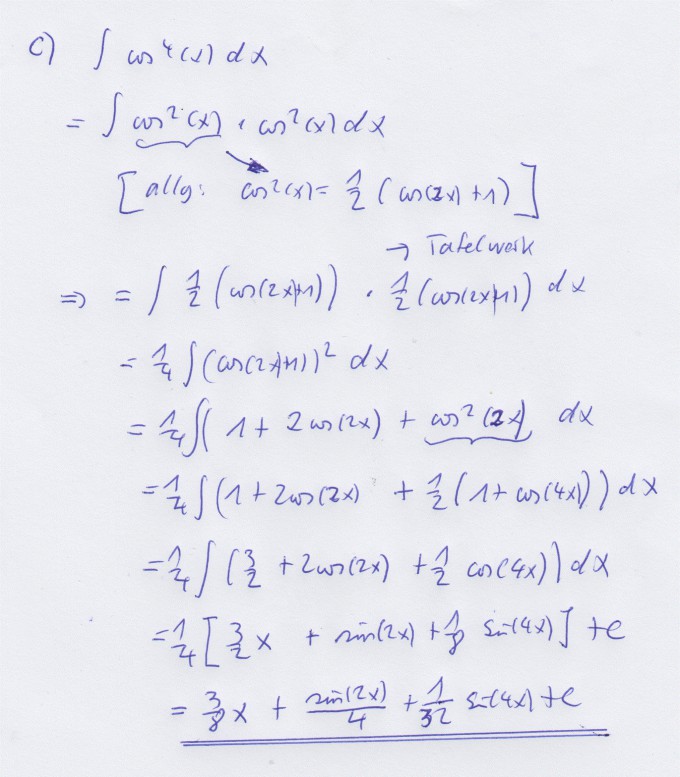 c) ∫ cos⁴(x) dx
= ∫ cos²(x) · cos²(x) dx
[allg: cos²(x) = 1/2 (cos(2x) + 1)]
→ Tafelwerk
⇒ = ∫ 1/2 (cos(2x)+1)) · 1/2 (cos(2x)+1)) dx
= 1/4 ∫ (cos(2x)+1))² dx
= 1/4 ∫( 1 + 2 cos(2x) + cos²(2x) dx
= 1/4 ∫ (1 + 2cos(2x) + 1/2 (1 + cos(4x))) dx
= 1/4 ∫ (3/2 + 2cos(2x) + 1/2 cos(4x)) dx
= 1/4 [3/2 x + sin(2x) + 1/8 sin(4x)] + c
= 3/8 x + sin(2x)/4 + 1/32 sin(4x) + c